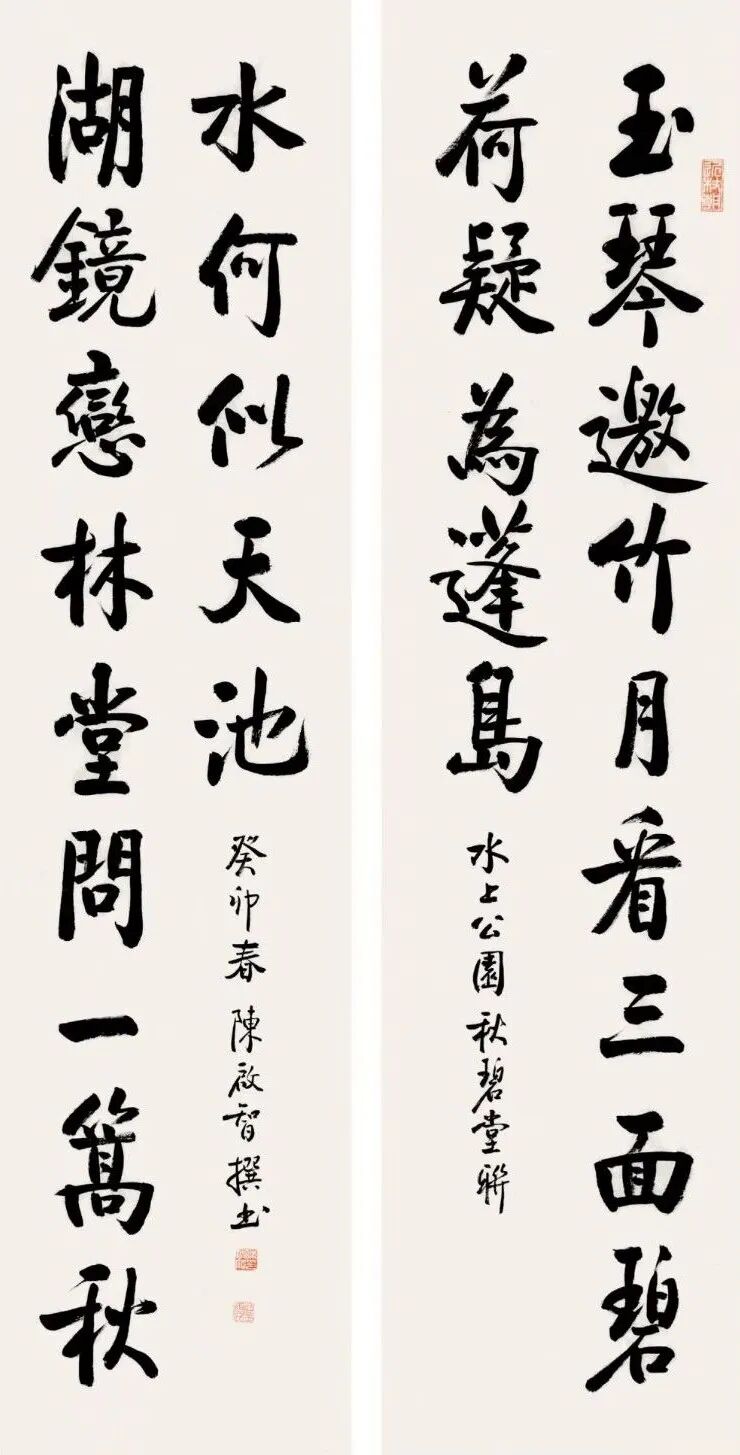 玉琴邀竹月看三面碧
荷疑為蓬島
水上公園秋碧堂聯
湖鏡戀林堂問一篙秋
水何似天池
癸卯春 陳啟智撰書